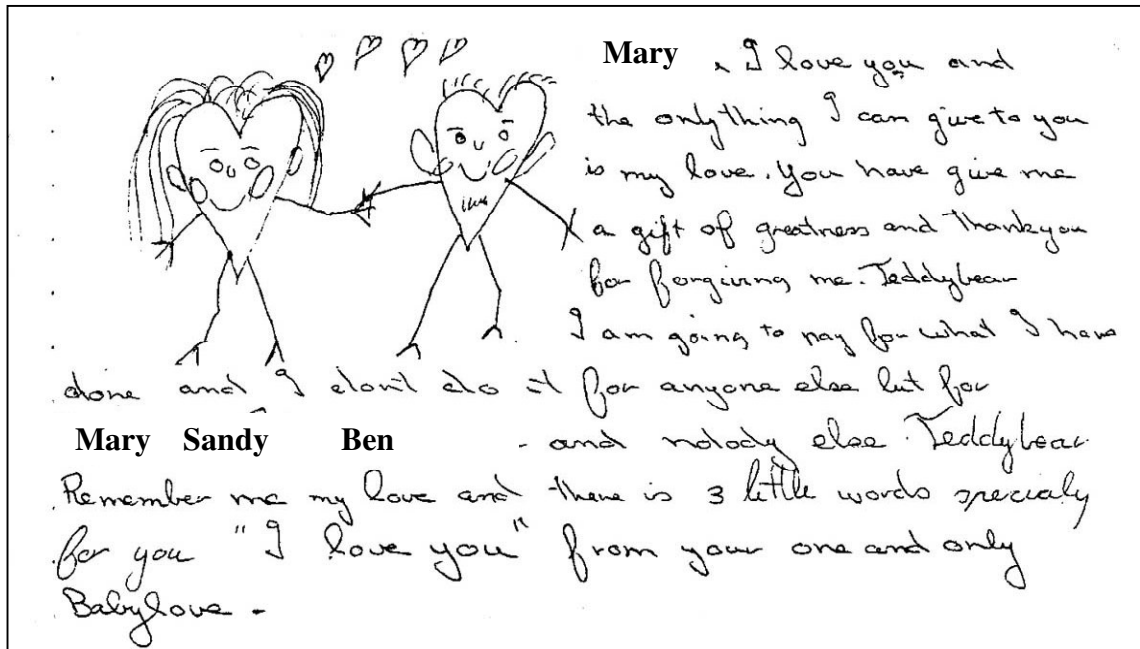 Mary , I love you and
the only thing I can give to you
is my love. You have give me
a gift of greatness and thankyou
for forgiving me. Teddybear
I am going to pay for what I have
done and I don't do it for anyone else but for
Mary Sandy Ben - and nobody else. Teddybear
Remember me my love and there is 3 little words specialy
for you "I love you" from your one and only
Babylove -